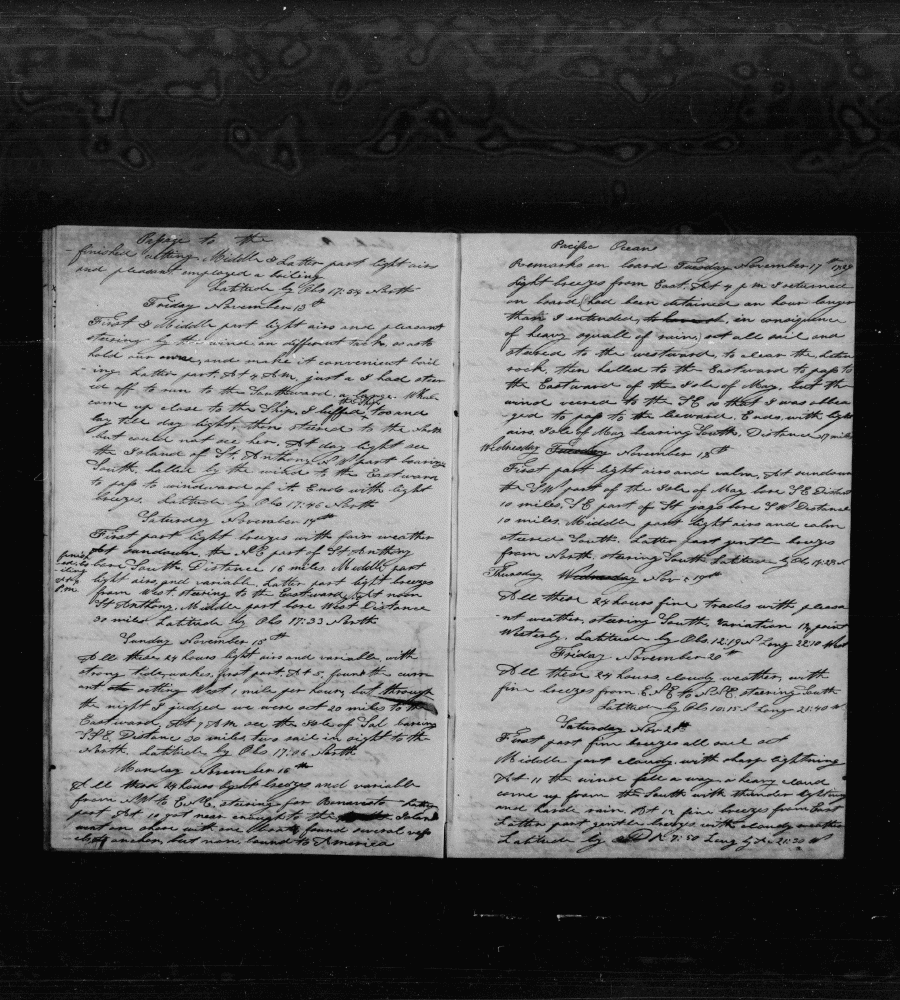 Passage to the
finished cutting Middle & Latter part light airs
and pleasant employed a boiling
Latitude by Obs 17:54 North
Friday November 13th
First & Middle part light airs and pleasant
steering by the wind on different tacks so as to
hold our own, and make it convenient boil
-ing. Latter part. At 4 AM. just as I had steer
ed off to run to the Southward
come up close to the Ship, I luffed too and
lay till day light then steered to the North
but could not see her. At day light see
the Island of St Anthony part bearing
South, halled by the wind to the Eastward
to pass to windward of it. Ends with light
breezes. Latitude by Obs 17:46 North
Saturday November 14th
First part light breezes with fair weather
At Sundown the NE part of St Anthony
bore South Distance 16 miles. Middle part
light airs and variable. Latter part light breezes
from West, steering to the Eastward, At noon
St Anthony, Middle part bore West Distance
30 miles Latitude by Obs 17:33 North
finish
boiling
P.m
Sunday November 15th
All these 24 hours light airs and variable, with
strong tide wakes, first part. At 5, found the curr
ent setting West 1 mile per hour, but through
the night I judged we were set 20 miles to the
Eastward, At 7 AM see the Isle of Sal bearing
SSE, Distance 30 miles, two sail in sight to the
North. Latitude by Obs 17:06 North
Monday November 16th
All these 24 hours light breezes and variable
from NW to ENE, steering for Bonavista latter
part. At 10 got near enough to the Island
went on shore with one boat, found several
at anchor, but none bound to America
Pacific Ocean
Remarks on board Tuesday November 17th
light breezes from East. At 9 p m I returned
on board, had been detained an hour longer
than I intended, in consequence
of heavy squall of rain, set all sail and
steered to the westward, to clear the
rock, then halled to the Eastward to pass to
the Eastward of the Isle of May, but the
wind veered to the SE so that I was obliea
ged to pass to the leeward. Ends with light
airs, Isle of May bearing South, Distance miles
Wednesday Tuesday November 18th
First part light airs and calm, At sundown
the SW part of the Isle of May bore SE Distance
10 miles, SE part of St Jago bore SW Distance
10 miles. Middle part light airs and calm
steered South. Latter part gentle breezes
from North, steering South Latitude by Obs 14:28 N
Thursday Wednesday Nov 19th
All these 24 hours fine trades with pleasa
-nt weather, steering South, Variation 1½ point
Westerly. Latitude by Obs. 12:19 N Long 22:10 West
Friday November 20th
All these 24 hours, cloudy weather, with
fine breezes from ENE to NNE, steering South
Latitude by Obs 10:15 N Long 21:40 W
Saturday Nov 21st
First part fine breezes all sail set
Middle part cloudy, with sharp lightning
At 11 the wind fell a way, a heavy cloud
come up from the South with thunder lightning
and hard rain. At 12 fine breezes from East
Latter part gentle breezes with cloudy weather
Latitude by DR 7:50 Long by 21:30 W